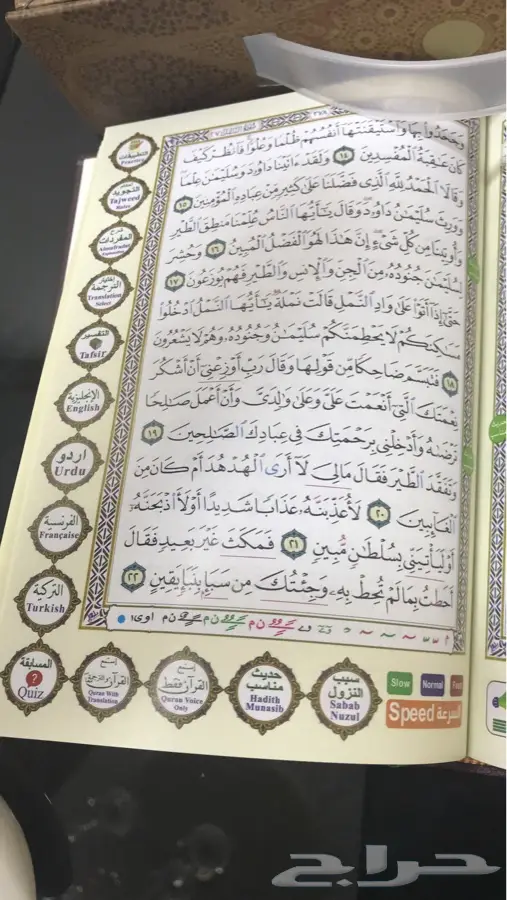 وَجَحَدُوا۟ بِهَا وَٱسْتَيْقَنَتْهَآ أَنفُسُهُمْ ظُلْمًا وَعُلُوًّا فَٱنظُرْ كَيْفَ
كَانَ عَٰقِبَةُ ٱلْمُفْسِدِينَ ١٤ وَلَقَدْ ءَاتَيْنَا دَاوُۥدَ وَسُلَيْمَٰنَ عِلْمًا
وَقَالَا ٱلْحَمْدُ لِلَّهِ ٱلَّذِى فَضَّلَنَا عَلَىٰ كَثِيرٍ مِّنْ عِبَادِهِ ٱلْمُؤْمِنِينَ ١٥
وَوَرِثَ سُلَيْمَٰنُ دَاوُۥدَ وَقَالَ يَٰٓأَيُّهَا ٱلنَّاسُ عُلِّمْنَا مَنطِقَ ٱلطَّيْرِ
وَأُوتِينَا مِن كُلِّ شَىْءٍ إِنَّ هَٰذَا لَهُوَ ٱلْفَضْلُ ٱلْمُبِينُ ١٦ وَحُشِرَ
لِسُلَيْمَٰنَ جُنُودُهُۥ مِنَ ٱلْجِنِّ وَٱلْإِنسِ وَٱلطَّيْرِ فَهُمْ يُوزَعُونَ ١٧
حَتَّىٰٓ إِذَآ أَتَوْا۟ عَلَىٰ وَادِ ٱلنَّمْلِ قَالَتْ نَمْلَةٌ يَٰٓأَيُّهَا ٱلنَّمْلُ ٱدْخُلُوا۟
مَسَٰكِنَكُمْ لَا يَحْطِمَنَّكُمْ سُلَيْمَٰنُ وَجُنُودُهُۥ وَهُمْ لَا يَشْعُرُونَ
١٨ فَتَبَسَّمَ ضَاحِكًا مِّن قَوْلِهَا وَقَالَ رَبِّ أَوْزِعْنِىٓ أَنْ أَشْكُرَ
نِعْمَتَكَ ٱلَّتِىٓ أَنْعَمْتَ عَلَىَّ وَعَلَىٰ وَٰلِدَىَّ وَأَنْ أَعْمَلَ صَٰلِحًا
تَرْضَىٰهُ وَأَدْخِلْنِى بِرَحْمَتِكَ فِى عِبَادِكَ ٱلصَّٰلِحِينَ ١٩
وَتَفَقَّدَ ٱلطَّيْرَ فَقَالَ مَالِىَ لَآ أَرَى ٱلْهُدْهُدَ أَمْ كَانَ مِنَ
ٱلْغَآئِبِينَ ٢٠ لَأُعَذِّبَنَّهُۥ عَذَابًا شَدِيدًا أَوْ لَأَا۟ذْبَحَنَّهُۥٓ
أَوْ لَيَأْتِيَنِّى بِسُلْطَٰنٍ مُّبِينٍ ٢١ فَمَكَثَ غَيْرَ بَعِيدٍ فَقَالَ
أَحَطتُ بِمَا لَمْ تُحِطْ بِهِۦ وَجِئْتُكَ مِن سَبَإٍۭ بِنَبَإٍ يَقِينٍ ٢٢
تطبيقات
Practice
التجويد
Tajweed
Rules
شرح
المفردات
اختيار
الترجمة
Translation
Select
التفسير
Tafsir
الإنجليزية
English
اردو
Urdu
الفرنسية
Française
التركية
Turkish
المسابقة
?
Quiz
إستمع
القرآن والترجمة
Quran With
Translation
إستمع
القرآن فقط
Quran Voice
Only
حديث
مناسب
Hadith
Munasib
سبب
النزول
Sabab
Nuzul
Slow
Normal
Speed السرعة
حراج